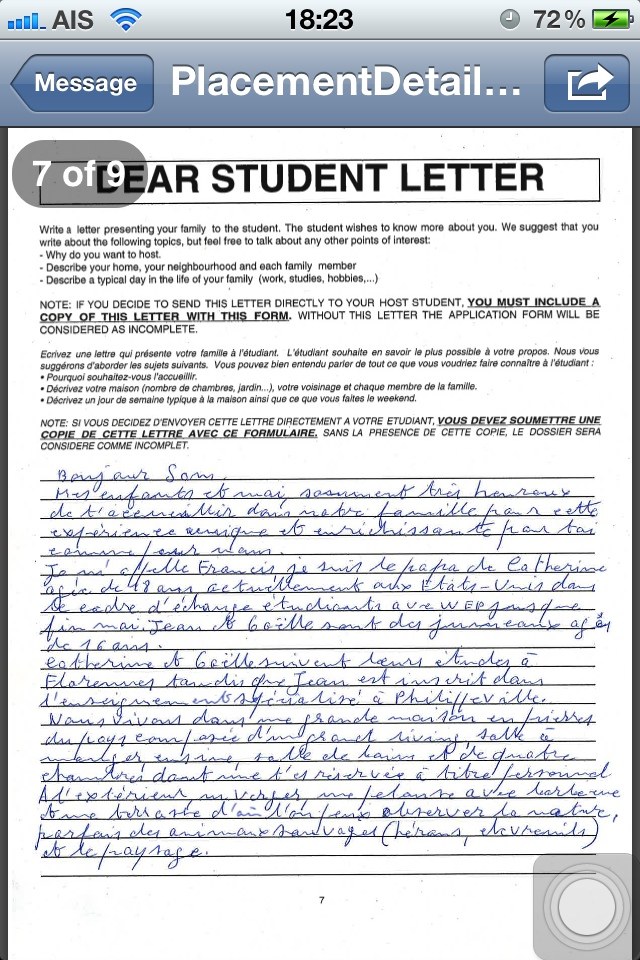 AIS 18:23 72%
Message PlacementDetail...
7 of 9
DEAR STUDENT LETTER
Write a letter presenting your family to the student. The student wishes to know more about you. We suggest that you
write about the following topics, but feel free to talk about any other points of interest:
- Why do you want to host.
- Describe your home, your neighbourhood and each family member
- Describe a typical day in the life of your family (work, studies, hobbies,...)
NOTE: IF YOU DECIDE TO SEND THIS LETTER DIRECTLY TO YOUR HOST STUDENT, YOU MUST INCLUDE A
COPY OF THIS LETTER WITH THIS FORM. WITHOUT THIS LETTER THE APPLICATION FORM WILL BE
CONSIDERED AS INCOMPLETE.
Ecrivez une lettre qui présente votre famille à l'étudiant. L'étudiant souhaite en savoir le plus possible à votre propos. Nous vous
suggérons d'aborder les sujets suivants. Vous pouvez bien entendu parler de tout ce que vous voudriez faire connaître à l'étudiant :
• Pourquoi souhaitez-vous l'accueillir.
• Décrivez votre maison (nombre de chambres, jardin...), votre voisinage et chaque membre de la famille.
• Décrivez un jour de semaine typique à la maison ainsi que ce que vous faites le weekend.
NOTE: SI VOUS DECIDEZ D'ENVOYER CETTE LETTRE DIRECTEMENT A VOTRE ETUDIANT, VOUS DEVEZ SOUMETTRE UNE
COPIE DE CETTE LETTRE AVEC CE FORMULAIRE. SANS LA PRESENCE DE CETTE COPIE, LE DOSSIER SERA
CONSIDERE COMME INCOMPLET.
Bonjour Som,
Mes enfants et moi, sommes très heureux
de t'accueillir dans notre famille pour cette
expérience unique et enrichissante pour toi
comme pour nous.
Je m'appelle Francis je suis le papa de Catherine
agée de 18 ans actuellement aux Etats-Unis dans
le cadre d'échange étudiants avec WEP jusque
fin mai. Jean et Gaëlle sont des jumeaux agés
de 16 ans.
Catherine et Gaëlle suivent leurs études à
Florennes tandis que Jean est inscrit dans
l'enseignement spécialisé à Philippeville.
Nous vivons dans une grande maison en pierres
du pays composée d'un grand living, salle à
manger, cuisine, salle de bains et de quatre
chambres dont une t'es réservée à titre personnel
A l'extérieur un verger, une pelouse avec barbecue
et une terrasse d'où l'on peux observer la nature,
parfois des animaux sauvages (hérons, chevreuils)
et le paysage.
7